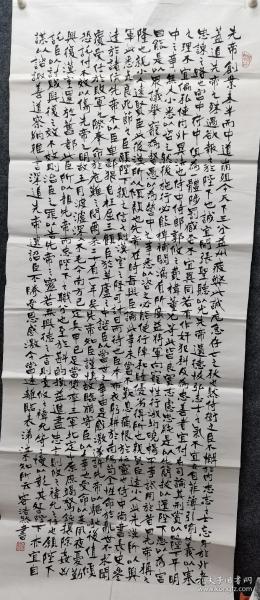 先帝創業未半而中道崩殂今天下三分益州疲弊此誠危急存亡之秋也然侍衛之臣不懈於內忠志之士忘身於外者
蓋追先帝之殊遇欲報之於陛下也誠宜開張聖聽以光先帝遺德恢弘志士之氣不宜妄自菲薄引喻失義以塞
忠諫之路也宮中府中俱為一體陟罰臧否不宜異同若有作奸犯科及為忠善者宜付有司論其刑賞以昭陛下平明
之理不宜偏私使內外異法也侍中侍郎郭攸之費禕董允等此皆良實志慮忠純是以先帝簡拔以遺陛下愚以為宮
中之事事無大小悉以咨之然後施行必能裨補闕漏有所廣益將軍向寵性行淑均曉暢軍事試用於昔日先帝稱之
曰能是以眾議舉寵為督愚以為營中之事悉以咨之必能使行陣和睦優劣得所也親賢臣遠小人此先漢所以興
隆也親小人遠賢臣此後漢所以傾頹也先帝在時每與臣論此事未嘗不歎息痛恨於桓靈也侍中尚書長史參
軍此悉貞良死節之臣願陛下親之信之則漢室之隆可計日而待也臣本布衣躬耕於南陽苟全性命於亂世不求聞
達於諸侯先帝不以臣卑鄙猥自枉屈三顧臣於草廬之中諮臣以當世之事由是感激遂許先帝以驅馳後值傾
覆受任於敗軍之際奉命於危難之間爾來二十有一年矣先帝知臣謹慎故臨崩寄臣以大事也受命以來夙夜憂歎
恐託付不效以傷先帝之明故五月渡瀘深入不毛今南方已定兵甲已足當獎率三軍北定中原庶竭駑鈍攘除奸凶
興復漢室還於舊都此臣所以報先帝而忠陛下之職分也至於斟酌損益進盡忠言則攸之禕允之任也願陛下
託臣以討賊興復之效不效則治臣之罪以告先帝之靈若無興德之言則責攸之禕允等之慢以彰其咎陛下亦宜自
謀以諮諏善道察納雅言深追先帝遺詔臣不勝受恩感激今當遠離臨表涕零不知所言 書